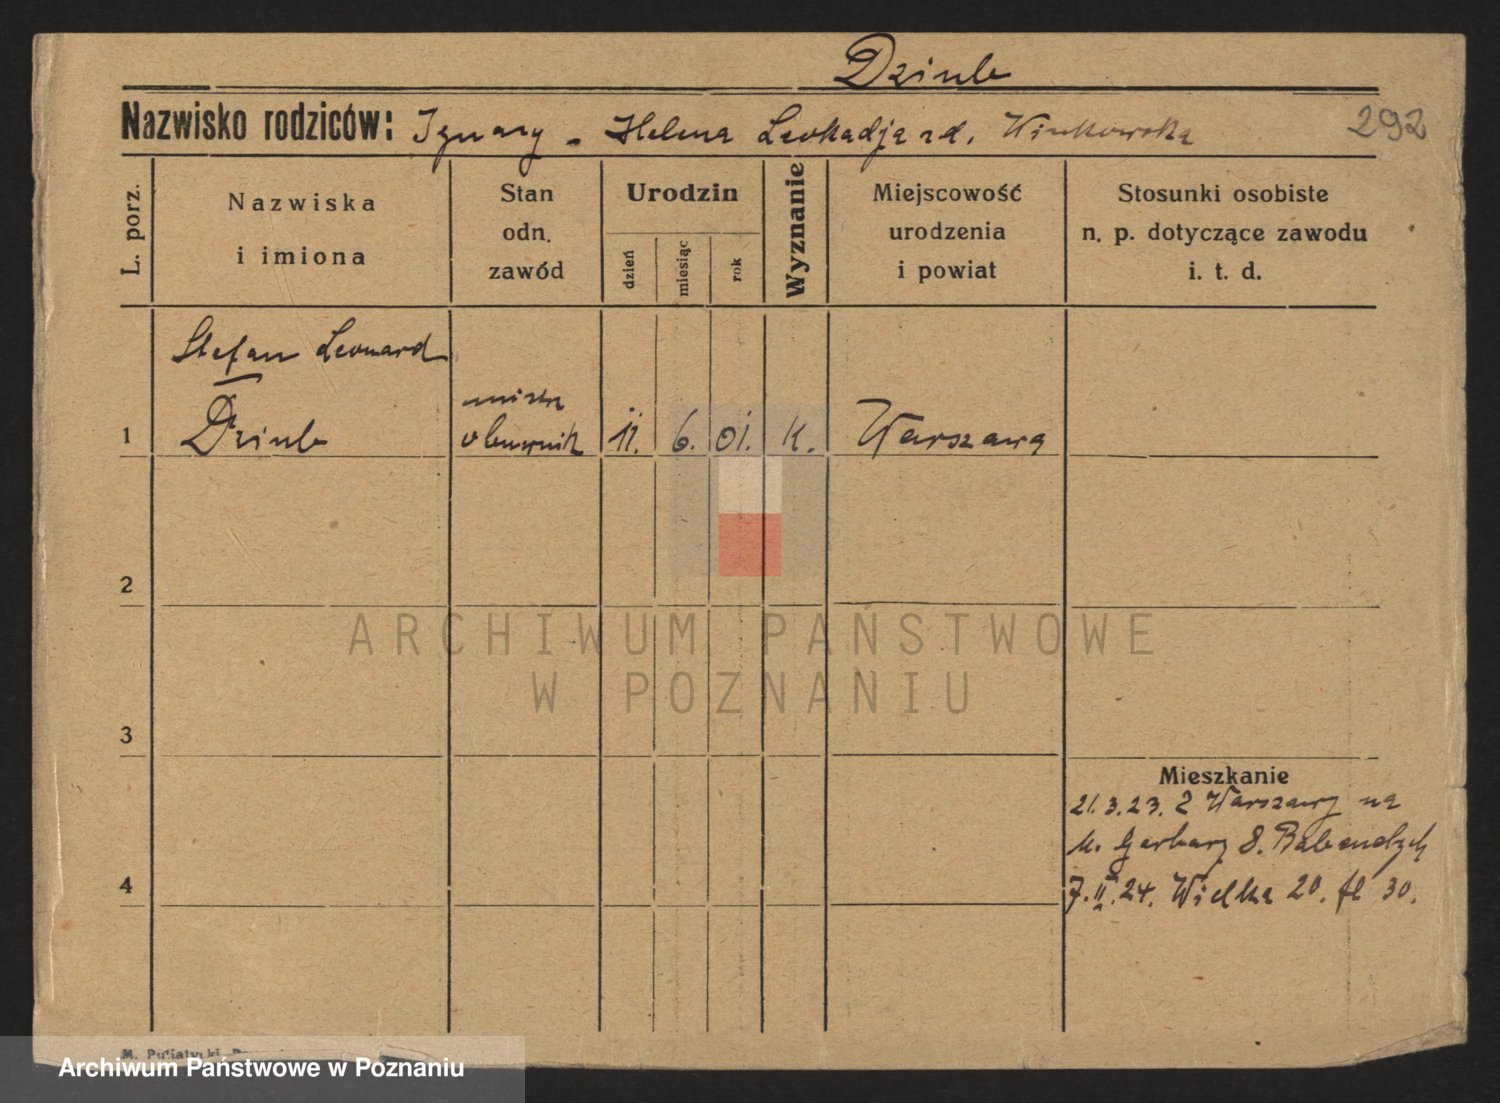 Dziub
Nazwisko rodziców: Ignacy - Helena Leokadja zd. Winkowska
292
L. porz.
Nazwiska
i imiona
Stan
odn.
zawód
Urodzin
dzień
miesiąc
rok
Wyznanie
Miejscowość
urodzenia
i powiat
Stosunki osobiste
n. p. dotyczące zawodu
i. t. d.
Stefan Leonard
1 Dziub
mistrz
obuwnik
11. 6. 01. k. Warszawa
2
3
4
Mieszkanie
21.3.23. z Warszawy na
M. Garbary 8.
7.II.24. Wielka 20. fl 30.
ARCHIWUM PAŃSTWOWE
W POZNANIU
Archiwum Państwowe w Poznaniu